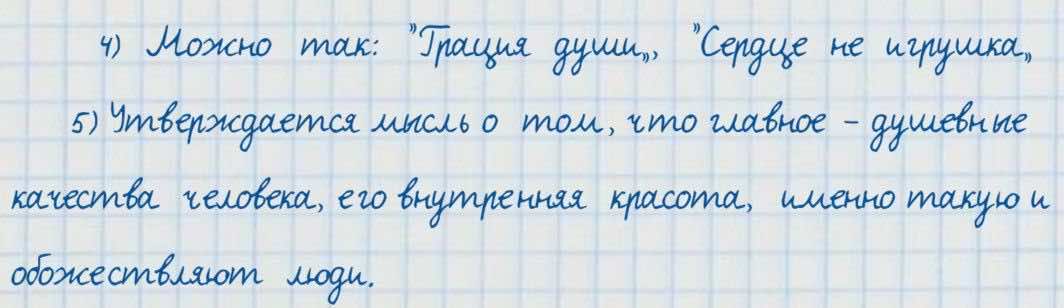 4) Можно так: "Грация души„, "Сердце не игрушка„
5) Утверждается мысль о том, что главное – душевные
качества человека, его внутренняя красота, именно такую и
обожествляют люди.